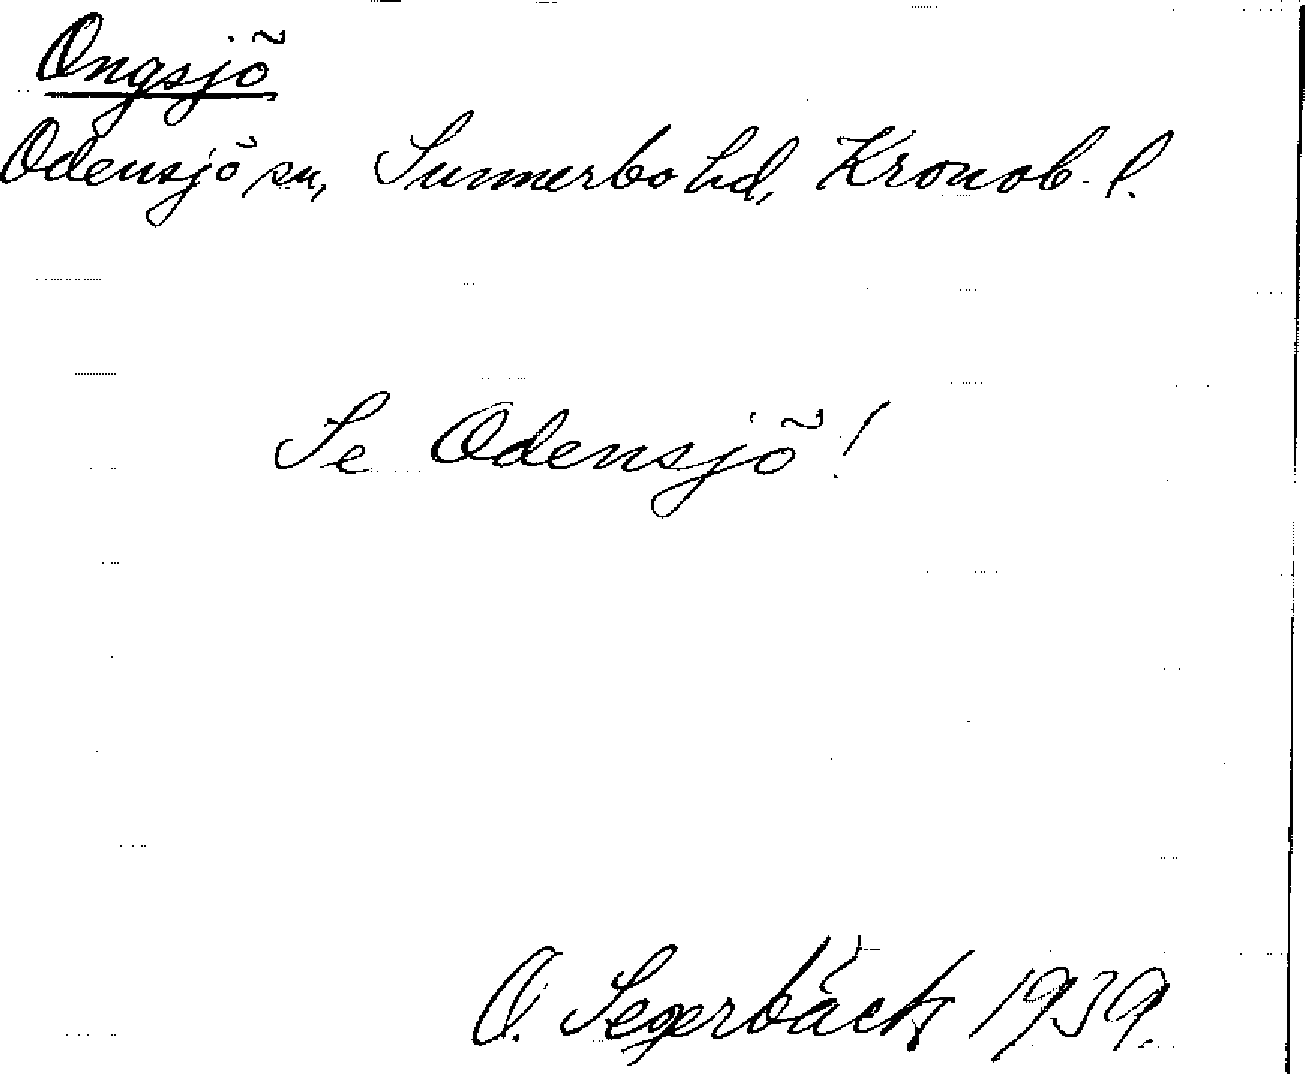 Ongsjö
Odensjö sn, Sunnerbo hd, Kronob. l.
Se Odensjö!
O. Segerbäck 1939.